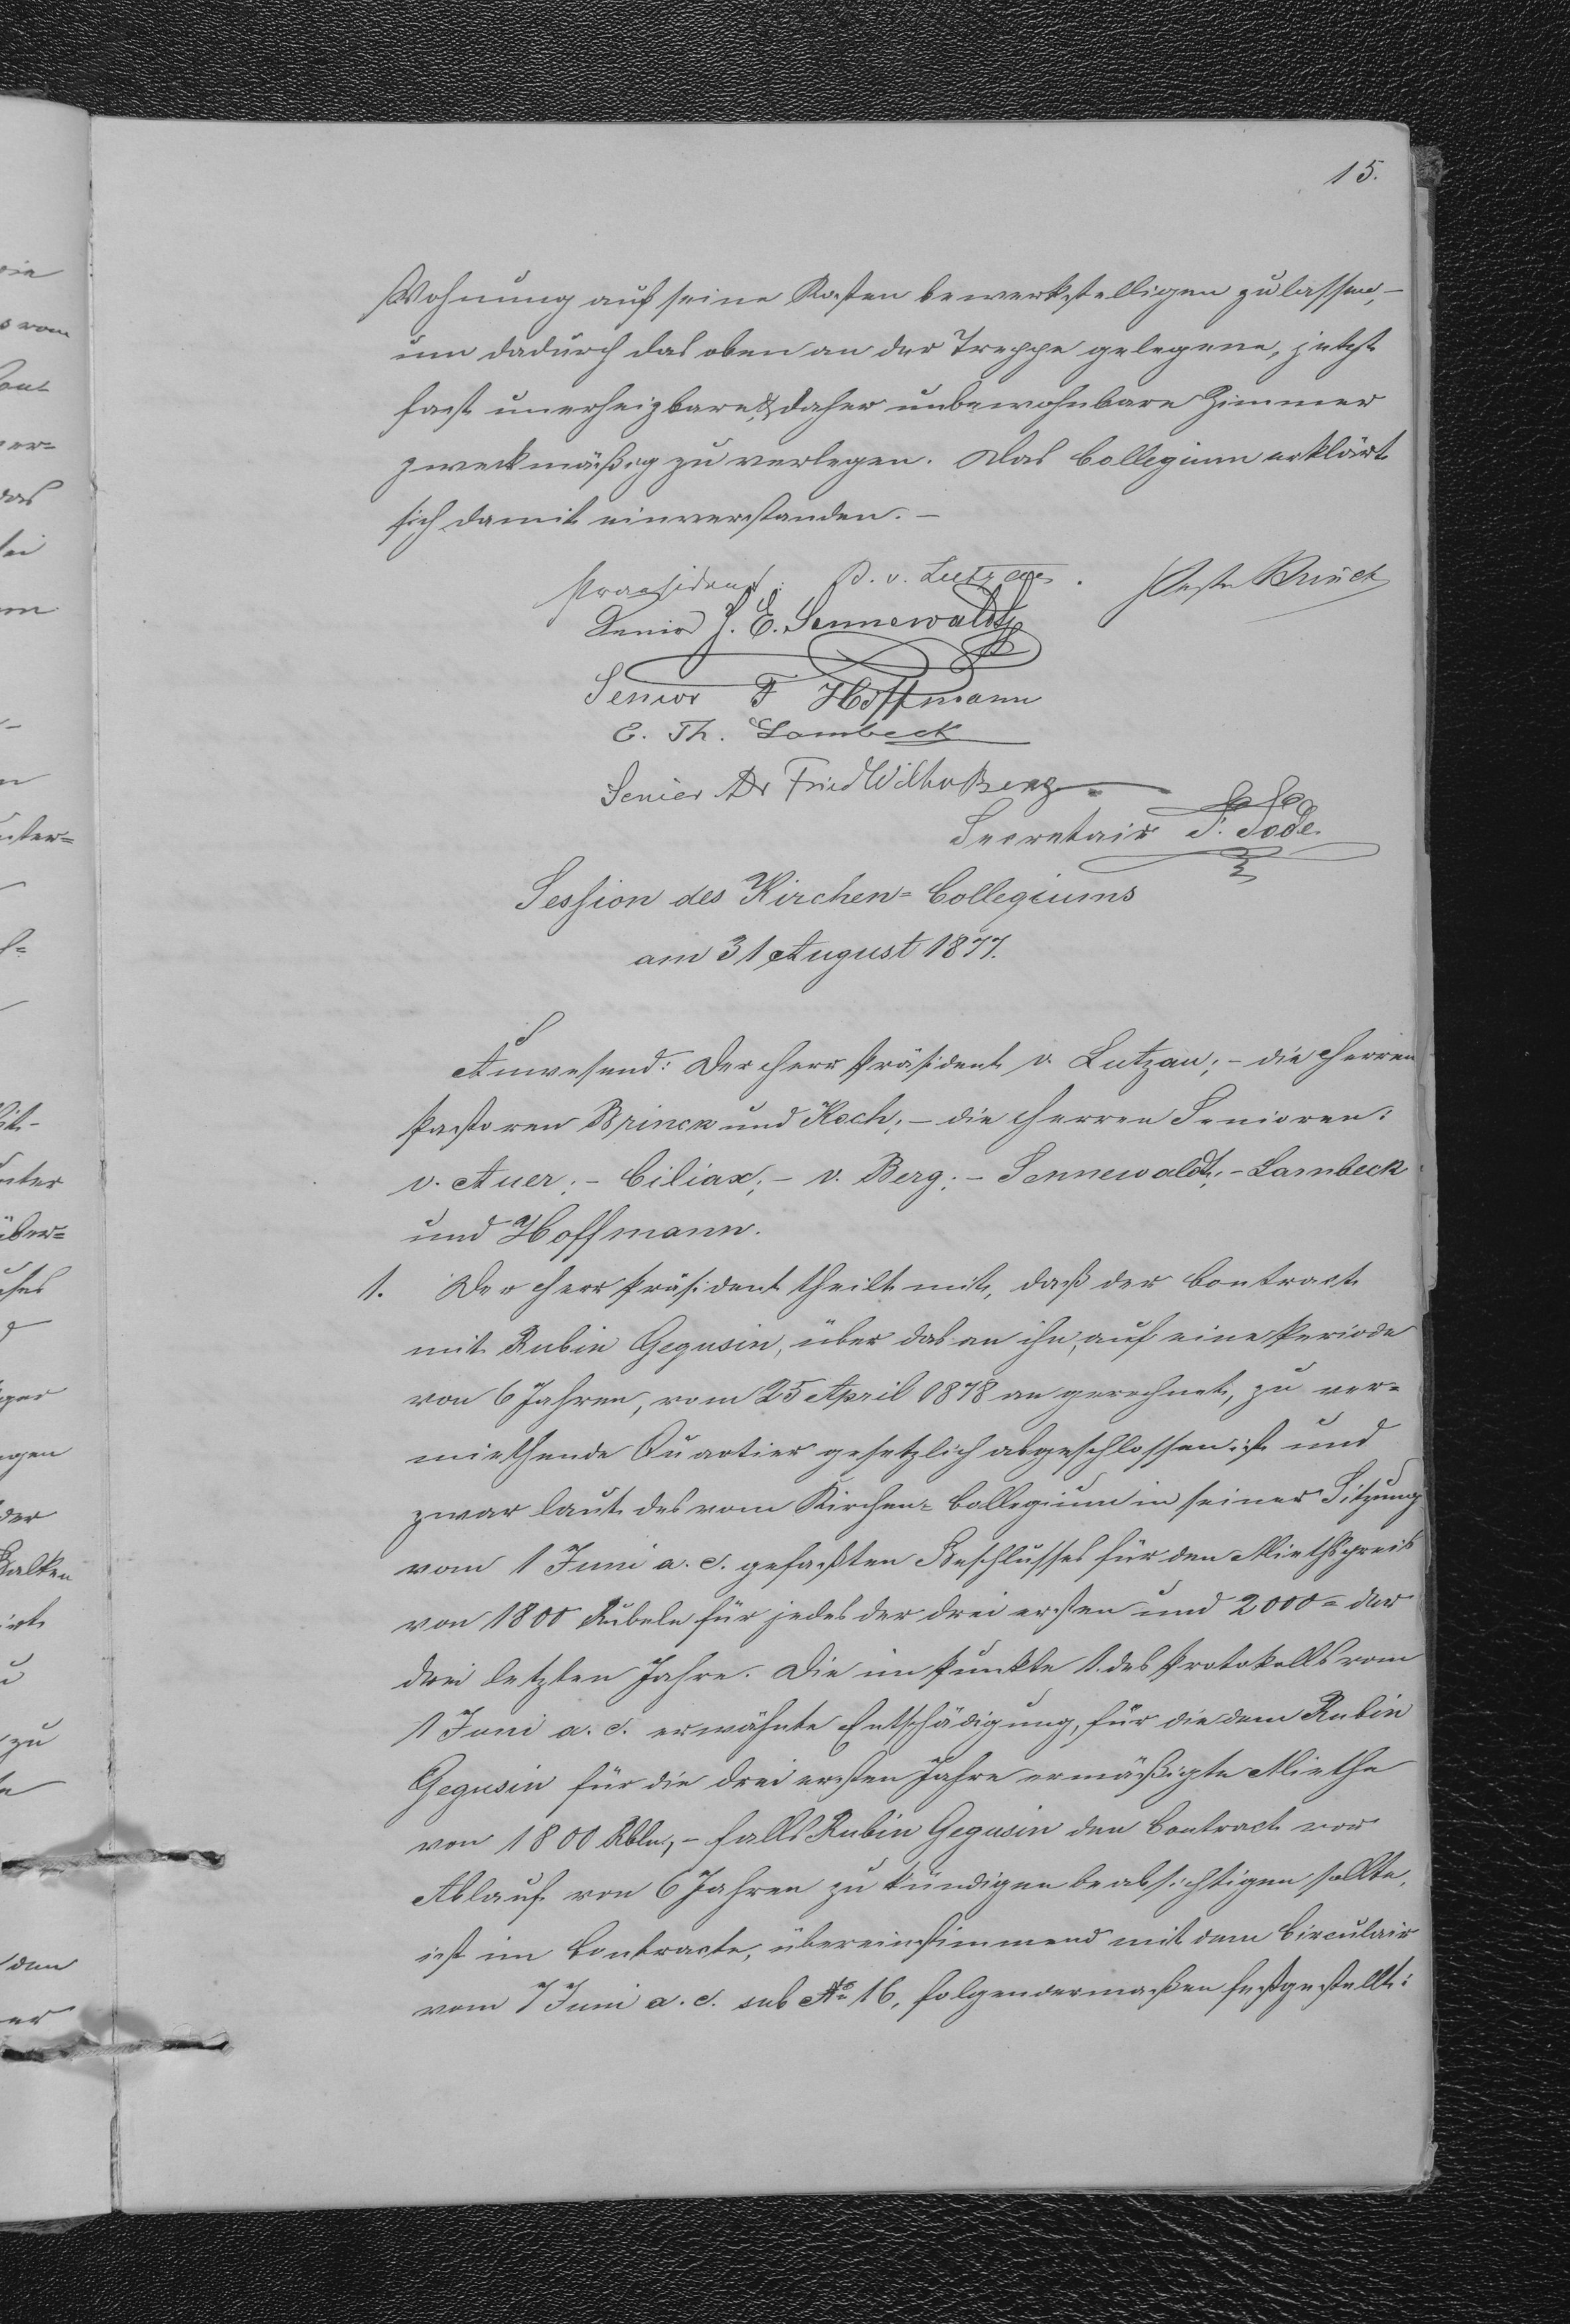 15.
Wohnung auf seine Kosten bewerkstelligen zu lassen, –
um dadurch das oben an der Treppe gelegene, jetzt
fast unerheizbare & daher unbewohnbare Zimmer
zweckmäßig zu verlegen. Das Collegium erklärt
sich damit einverstanden. –
Praesident v. Lutzau. Pastor Brinck
Senior J. E. Sennewaldt
Senior F Hoffmann
E. Th. Lambeck
Senior Dr Fried Wilh v Berg
Secretair Tode
Session des Kirchen-Collegiums
am 31 August 1877.
Anwesend: Der Herr Präsident v. Lutzau; – die Herren
Pastoren Brinck und Koch; – die Herren Senioren:
v. Auer; – Ciliax; – v. Berg; – Sennewaldt; – Lambeck
und Hoffmann.
1. Der Herr Präsident theilt mit, daß der Contract
mit Rubin Gegusin, über das an ihn, auf eine Periode
von 6 Jahren, vom 25 April 1878 an gerechnet, zu ver=
miethende Quartier gesetzlich abgeschlossen ist und
zwar laut des vom Kirchen=Collegium in seiner Sitzung
vom 1 Juni a. c. gefaßten Beschlusses für den Miethspreis
von 1800 Rubeln für jedes der drei ersten und 2000 = der
drei letzten Jahre. Die im Punkte 1. des Protokolls vom
1 Juni a. c. erwähnte Entschädigung, für die dem Rubin
Gegusin für die drei ersten Jahre ermäßigte Miethe
von 1800 Rbln, – falls Rubin Gegusin den Contract vor
Ablauf von 6 Jahren zu kündigen beabsichtigen sollte,
ist im Contracte, übereinstimmend mit dem Circulair
vom 7 Juni a. c. sub No 16, folgendermaßen festgestellt: